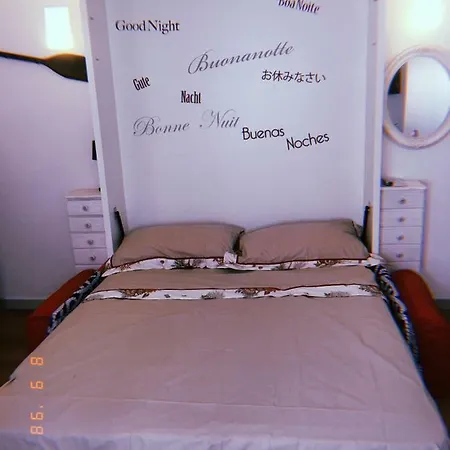 Boa Noite
Good Night
Buonanotte
お休みなさい
Gute
Nacht
Bonne Nuit
Buenas
Noches
8 9 '98